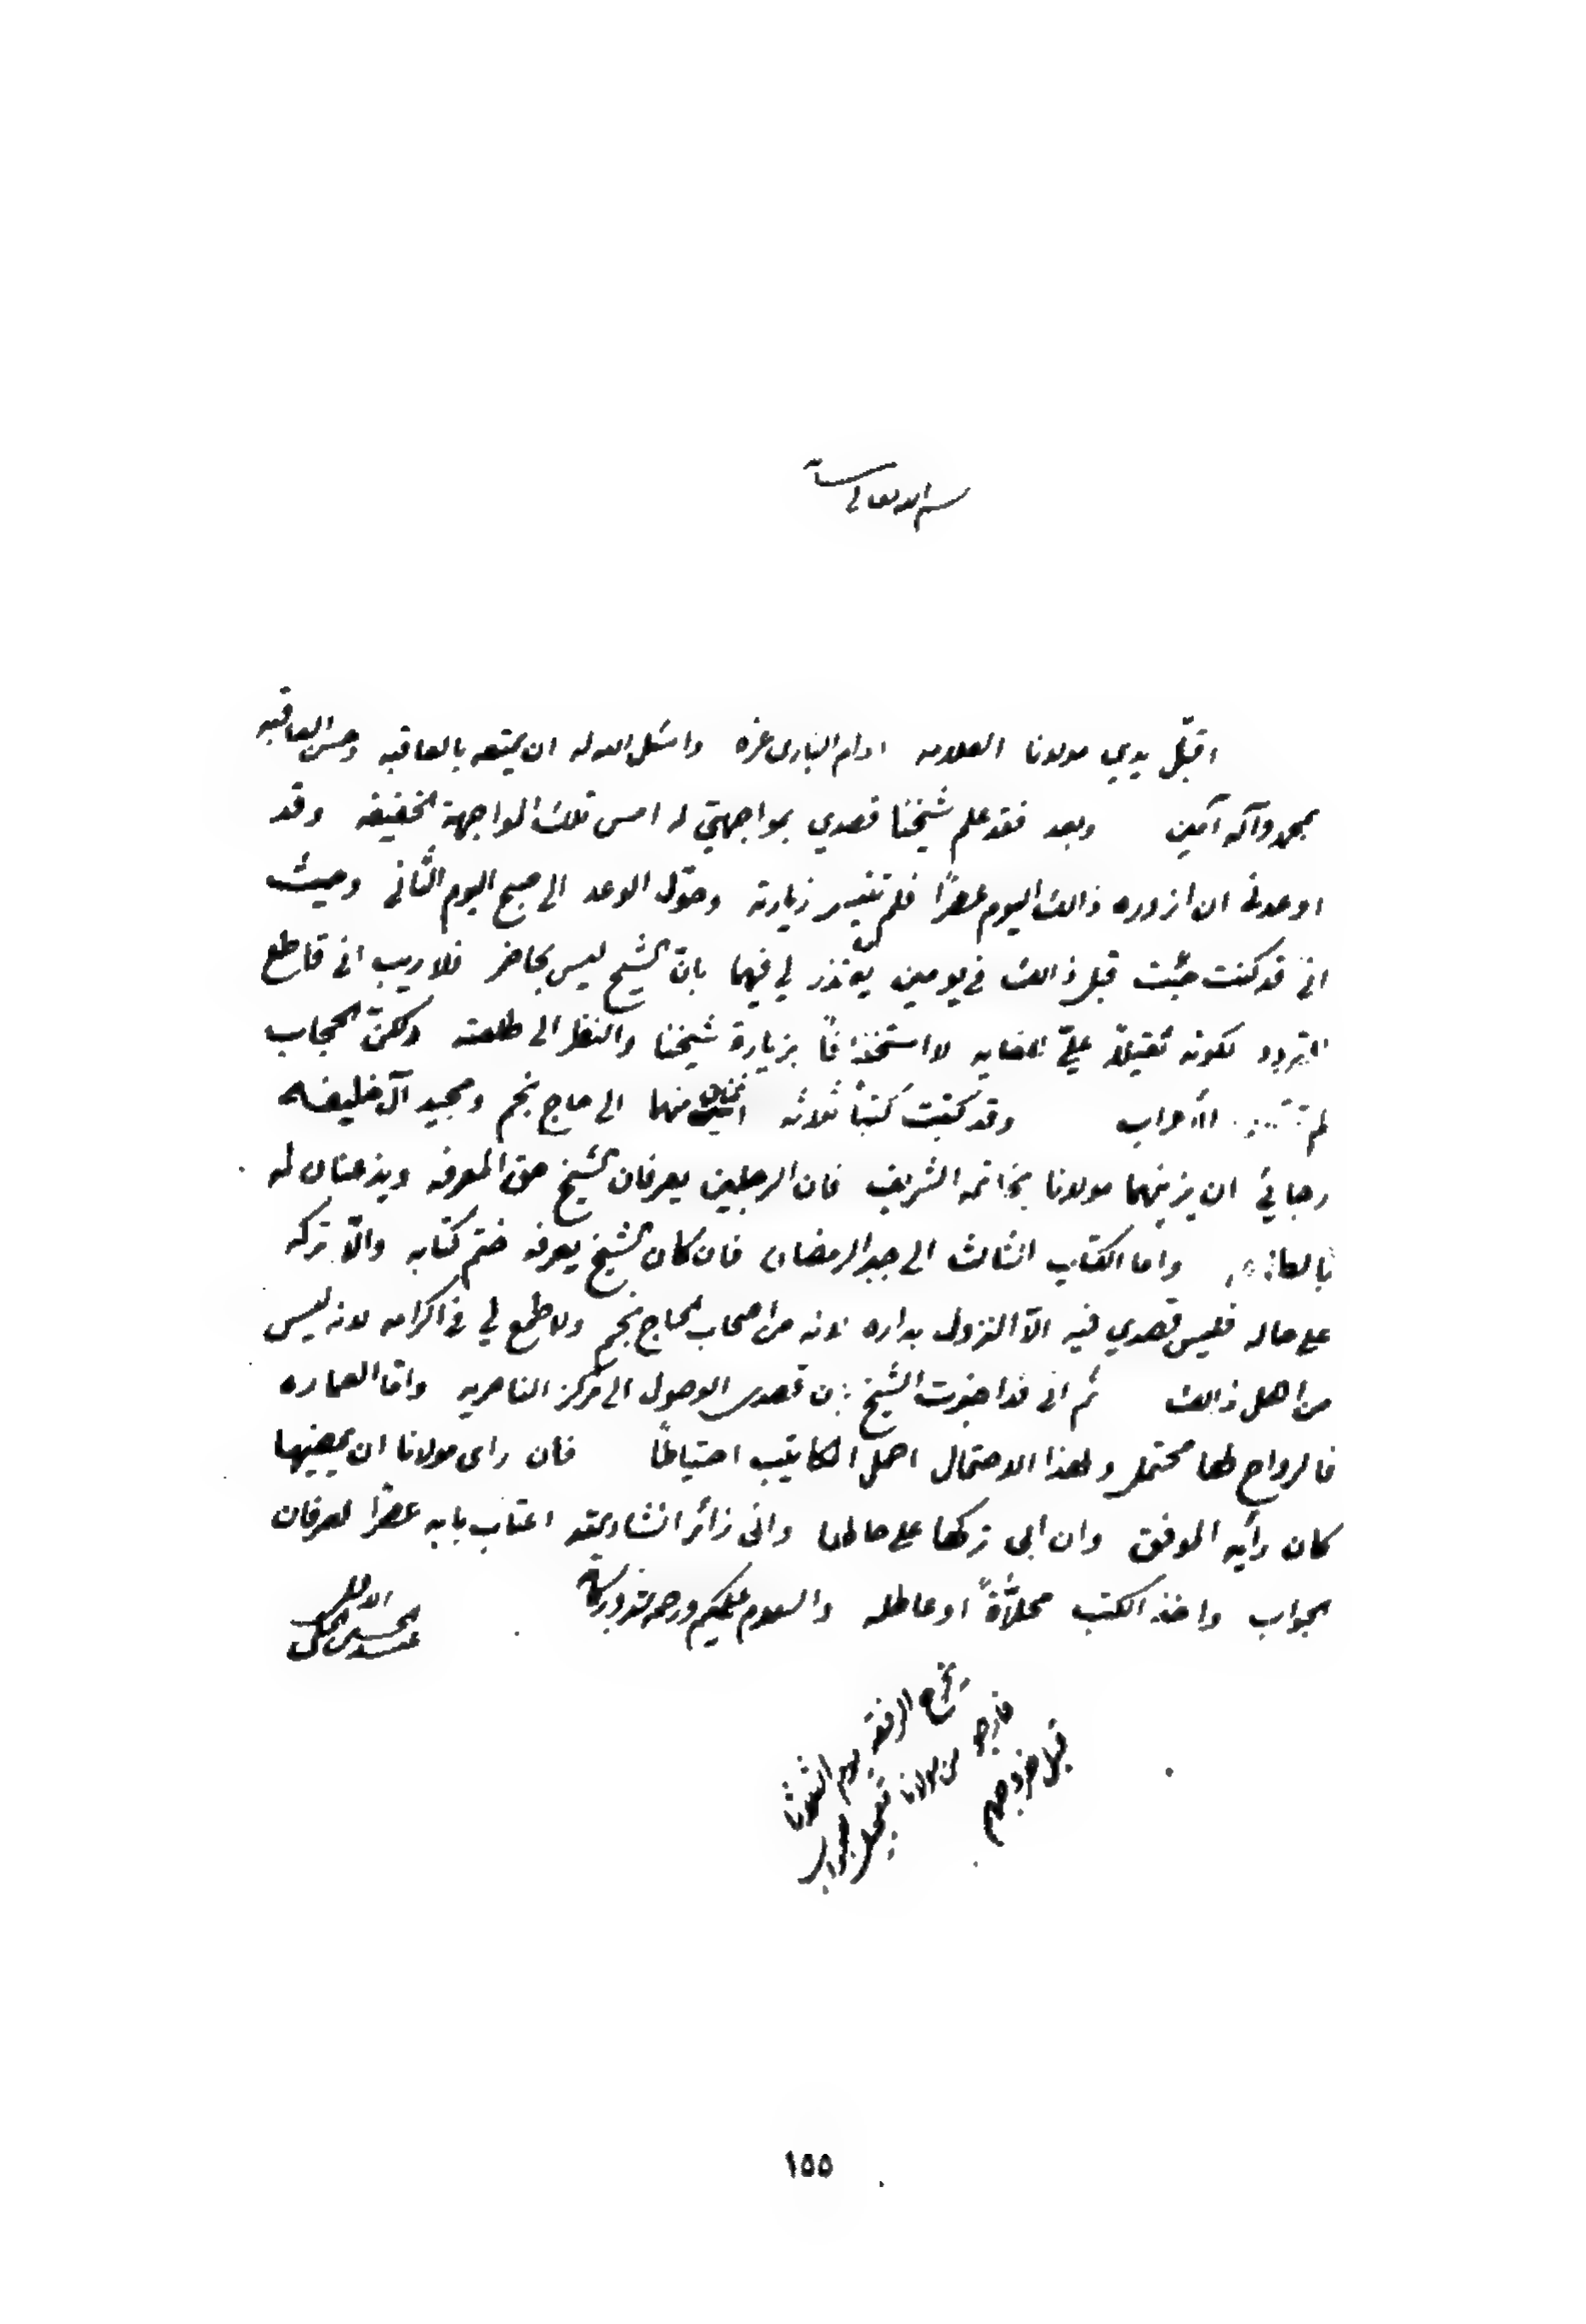 بسم الله تعالى
اقبّل يدي مولانا العلامه ادام الباري عزه واسئل الله له ان يمتعه بالعافيه وحسن العاقبه
بمحمد وآله آمين وبعد فقد علم شيخنا قصدي بمواجهتي له امس تلك المواجهة الخفيفه وقد
اوعدته ان ازوره ذالك اليوم عصرًا فلم تتيسر زيارته وحوّل الوعد الى صبح اليوم الثاني وحيث
اني قد كنت جئت قبل ذالك في يومين يعتذر لي فيهما بانّ الشيخ ليس بحاضر فلا ريب اني قاطع
التردد لكونه ثقيلاً عليّ للغايه لا استخفافًا بزيارة شيخنا والنظر الى طلعته ولكنّ الحجاب
لم وقد كتبت كتبًا ثلاثه اثنان منهما الى حاج نجم ومجيد آل خليفه
رجائي ان يزينهما مولانا بخاتمه الشريف فان الرجلين يعرفان الشيخ حق المعرفه ويذعنان له
واما الكتاب الثالث الى جبر الرمضان فان كان الشيخ يعرفه ختم كتابه والّا تركه
على حاله فليس قصدي فيه الّا النزول بداره لانه من اصحاب الحاج نجم ولا طمع لي في اكرامه لانه ليس
من اهل ذالك ثم اني قد اخبرت الشيخ بان قصدي الوصول الى مركز الناصريه وامّا العماره
فالرواح لها محتمل ولهذا الاحتمال احمل المكاتيب احتياطًا فان رأى مولانا ان يمضيها
كان رأيه الموفق وان ابى تركها على حالها واني زائر انشاء الله اعتاب بابه عصرًا لعرفان
الجواب واخذ الكتب محلاّةً او عاطله والسلام عليكم ورحمة الله وبركاته
عبد الحسين
١٥٥